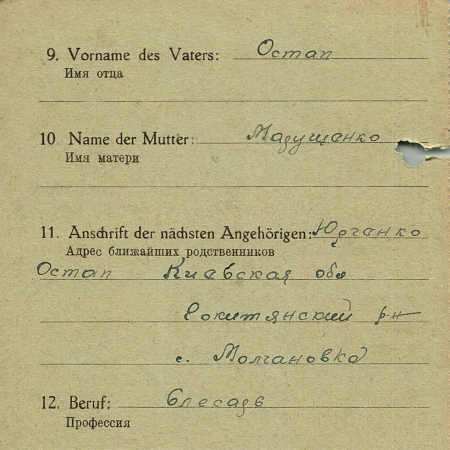 9. Vorname des Vaters: Остап
Имя отца
10. Name der Mutter: Мазущенко
Имя матери
11. Anschrift der nächsten Angehörigen: Юрченко
Адрес ближайших родственников
Остап Киевская обл
Рокитянский р-н
с. Молчановка
12. Beruf:
Профессия